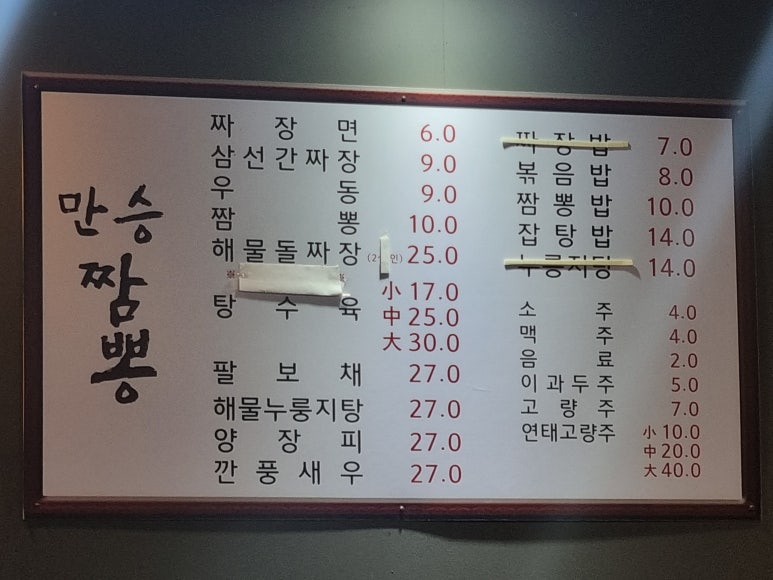 만승
짬
뽕
짜장면 6.0
삼선간짜장 9.0
우동 9.0
짬뽕 10.0
해물돌짜장 (2 인) 25.0
※
탕수육 小 17.0
中 25.0
大 30.0
팔보채 27.0
해물누룽지탕 27.0
양장피 27.0
깐풍새우 27.0
짜장밥 7.0
볶음밥 8.0
짬뽕밥 10.0
잡탕밥 14.0
누룽지탕 14.0
소주 4.0
맥주 4.0
음료 2.0
이과두주 5.0
고량주 7.0
연태고량주 小 10.0
中 20.0
大 40.0